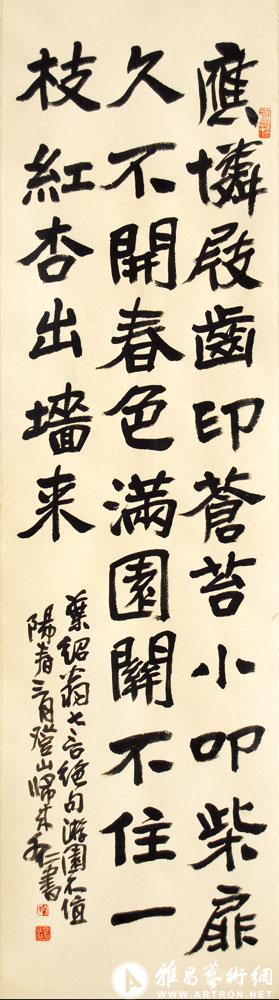 應憐屐齒印蒼苔小叩柴扉
久不開春色滿園關不住一
枝紅杏出墻来
葉紹翁七言絕句游園不值
陽春三月登山歸来
書
雅昌藝術網
WWW.ARTRON.NET